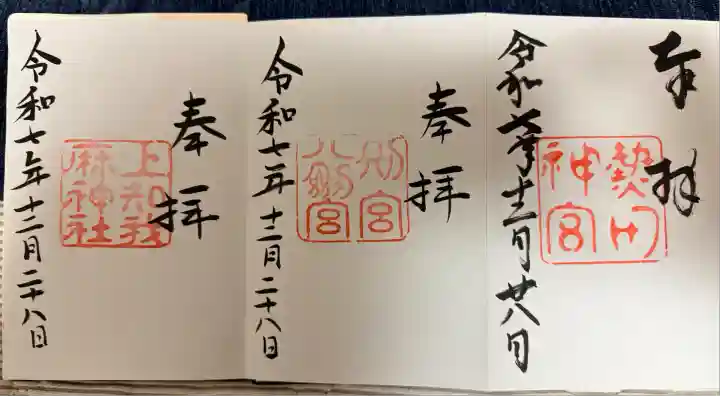 奉拝
熱田
神宮
令和七年十二月廿八日
奉拝
別宮
八剱宮
令和七年十二月二十八日
奉拝
上知我
麻神社
令和七年十二月二十八日